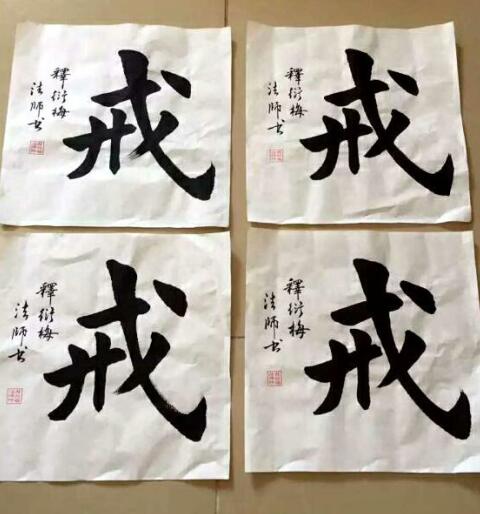 戒
釋衍梅
法師书
戒
釋衍梅
法師书
戒
釋衍梅
法師书
戒
釋衍梅
法師书